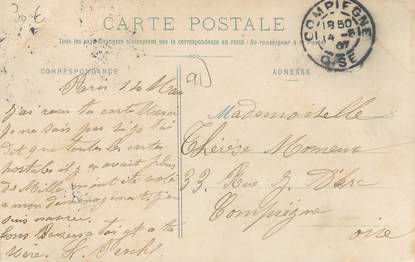 30 €
CARTE POSTALE
Tous les pays étrangers n'acceptent pas la correspondance au recto. Se renseigner à la Poste
COMPIEGNE
18 50
14 -5
07
OISE
CORRESPONDANCE
ADRESSE
Paris 14 Mai
J'ai reçu ta carte
Je ne sais pas si je t'ai
dit que toutes les cartes
postales il y en avait plus
de Mille m'ont été volé
a mon déménagement, j'en
suis navrée.
Bons Baisers a toi et a ta
Mère.
Mademoiselle
Thérèse Momeux
33. Rue J. D'Arc
Compiègne
oise